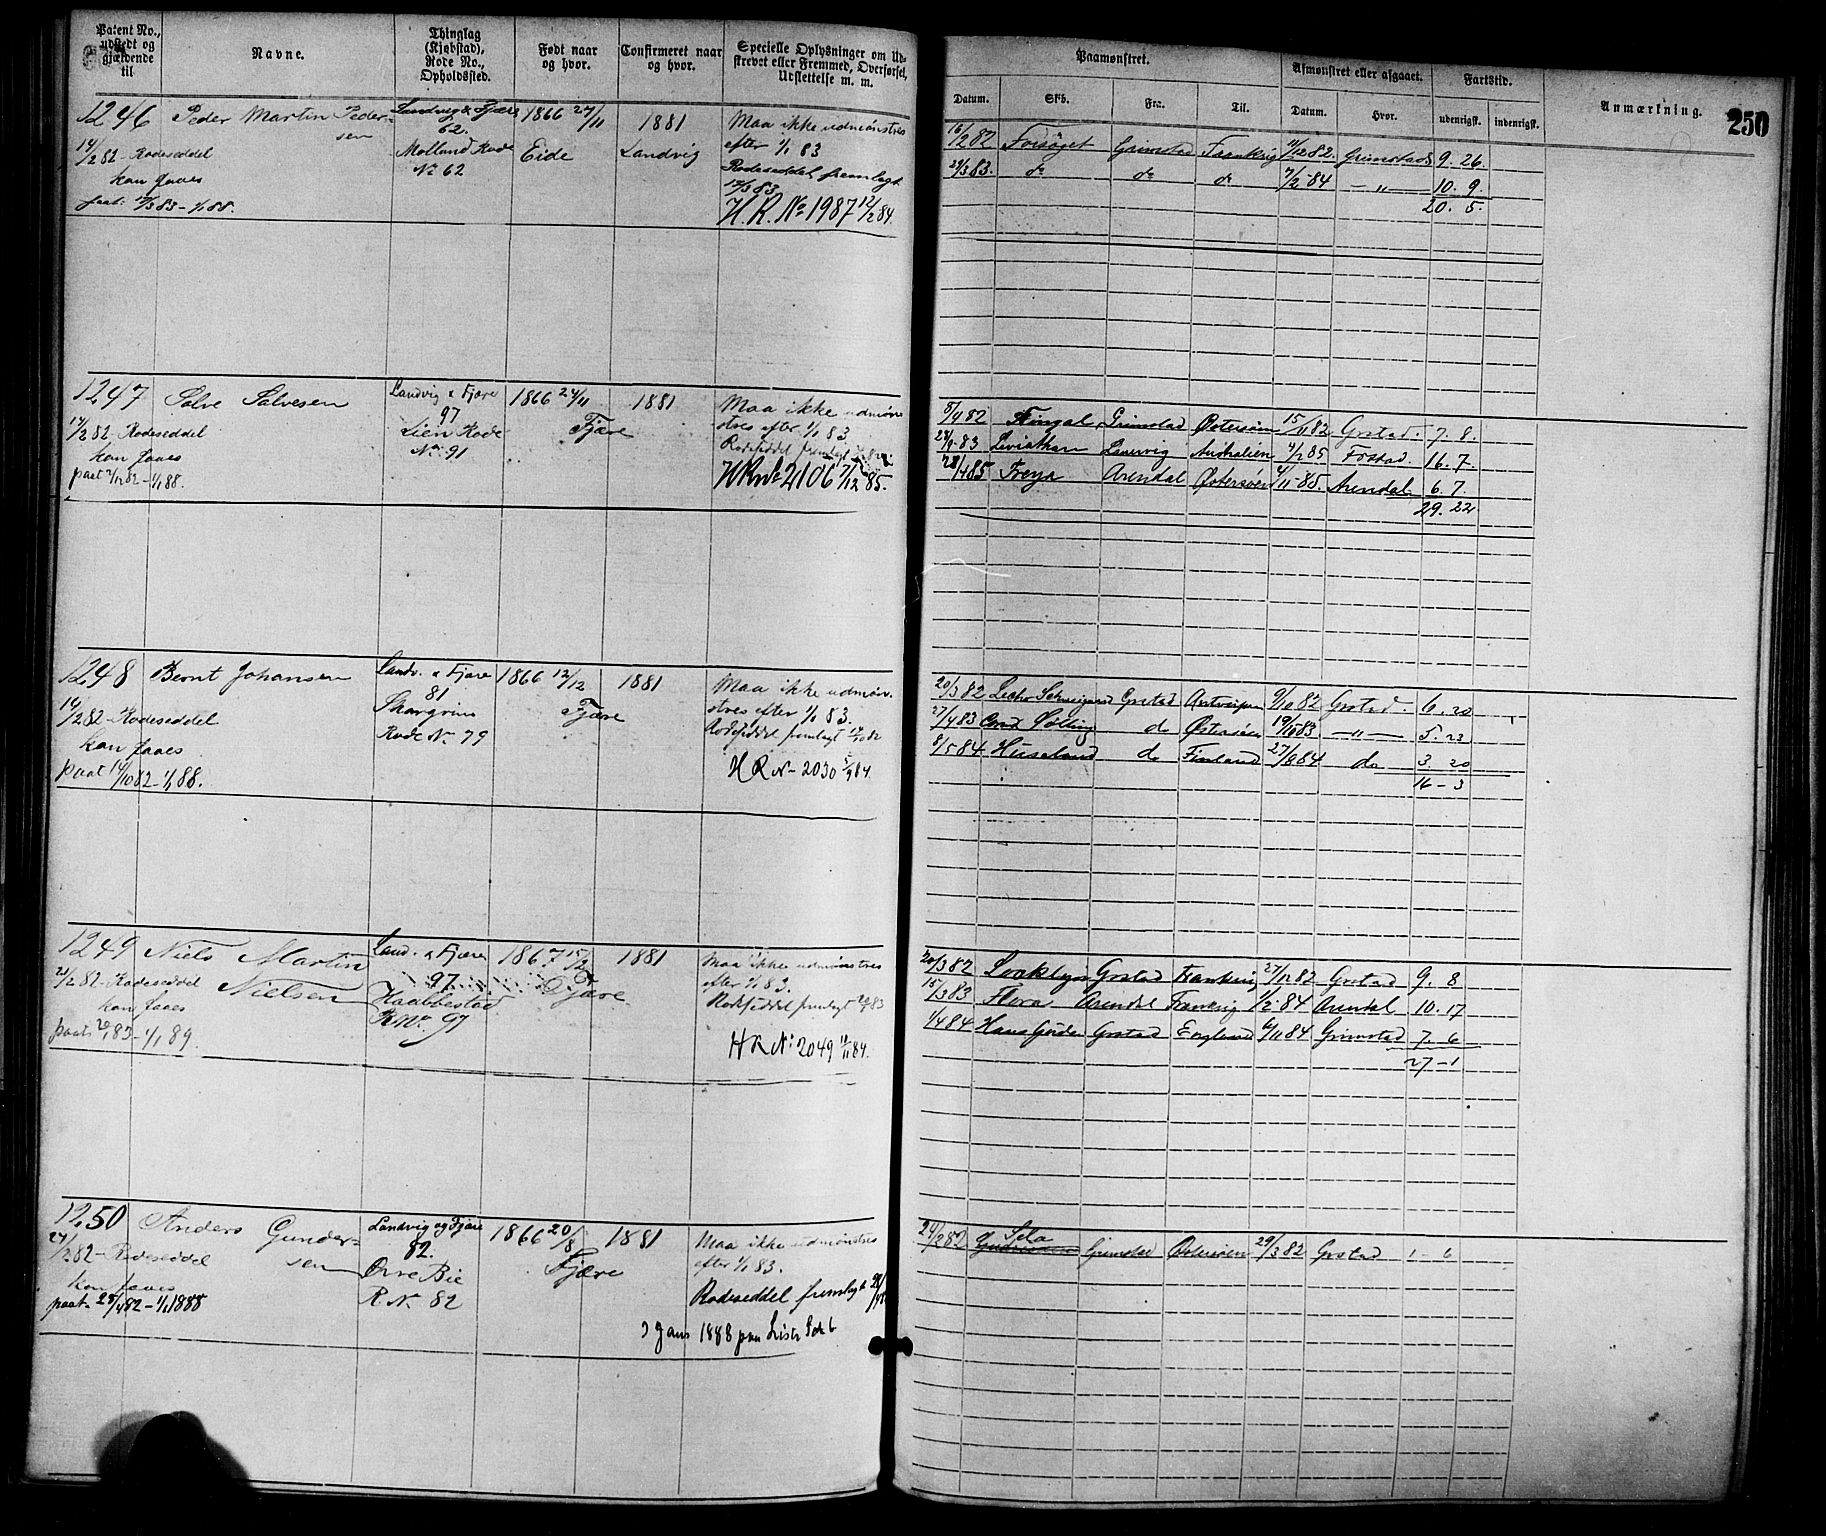 Patent No., udstedt og gjældende til
Navne.
Thinglag (Kjøbstad), Rode No., Opholdssted.
Født naar og hvor.
Confirmeret naar og hvor.
Specielle Oplysninger om Udskrevet eller Fremmed, Overførsel, Udslettelse m. m.
Paamønstret.
Afmønstret eller afgaaet.
Fartstid.
Anmærkning.
250
Datum.
Skb.
Fra.
Til.
Datum.
Hvor.
udenrigsk.
indenrigsk.
1246 Peder Martin Peder-
sen
14/2 82 - Rodeseddel
kan faaes
paat: 17/3 83 - 1/1 88.
Landvig & Fjære
62.
Molland Rode
No 62
1866 27/11
Eide
1881
Landvig
Maa ikke udmønstres
efter 1/1 83
Rodeseddel fremlagt
17/3 83
H.R. No 1987 12/2 84.
16/2 82 Forsøget Grimstad Frankrig 11/12 82. Grimstad 9. 26.
29/3 83. do do do 7/2 84 - " - 10. 9.
20. 5.
1247 Salve Salvesen
17/2 82 - Rodeseddel
kan faaes
paat 2/12 82 - 1/1 88.
Landvig & Fjære
97
Lien Rode
No 91
1866 24/11
Fjære
1881
Maa ikke udmøn-
stres efter 1/1 83.
Rodeseddel fremlagt
HR No 2106 7/12 85.
8/4 82 Fingal Grimstad Østersøen 15/11 82 Grstad. 7. 8.
Leviathan Laurvig Australien 4/2 85 16. 7.
28/4 85 Freya Arendal Østersøen 4/11 85. Arendal 6. 7.
29. 22
1248 Bernt Johansen
14/2 82 - Rodeseddel
kan faaes
paat 14/10 82 - 1/1 88.
Landv. & Fjære
81
Rode No 79
1866 12/12
Fjære
1881
Maa ikke udmøn-
stres efter 1/1 83.
Rodeseddel fremlagt
H R No 2030 5/9 84.
20/3 82 Grstad Antverpen 9/10 82 Grstad. 6. 20
27/4 83 do Østersøen 19/10 83 - " - 5. 23
8/5 84 Huseland do Finland 27/8 84 do 3. 20
16 - 3
1249 Niels Martin
Nielsen
21/2 82 - Rodeseddel
kan faaes
paat - 1/1 89.
Land. & Fjære
97.
Haabbestad
R No. 97
1867 15/2
Fjære
1881
Maa ikke udmønstres
efter 1/1 83.
Rodeseddel fremlagt
H R No 2049 84.
20/3 82 Grstad Frankrig 27/12 82 Grstad 9. 8
15/3 83 Flora Arendal Frankrig 1/2 84 Arendal 10. 17
1/4 84 Grstad England 6/11 84 Grimstad 7. 6
27 - 1
1250 Anders Gunder-
sen
24/2 82 - Rodeseddel
kan faaes
paat 25/4 82 - 1/1 1888
Landvig og Fjære
82.
Øvre Bie
R. No 82
1866 20/8
Fjære
1881
Maa ikke udmønstres
efter 1/1 83.
Rodeseddel fremlagt
1888 paa Liste
24/2 82 Sela Grimstad Østersøen 29/3 82 Grstad 1 - 6